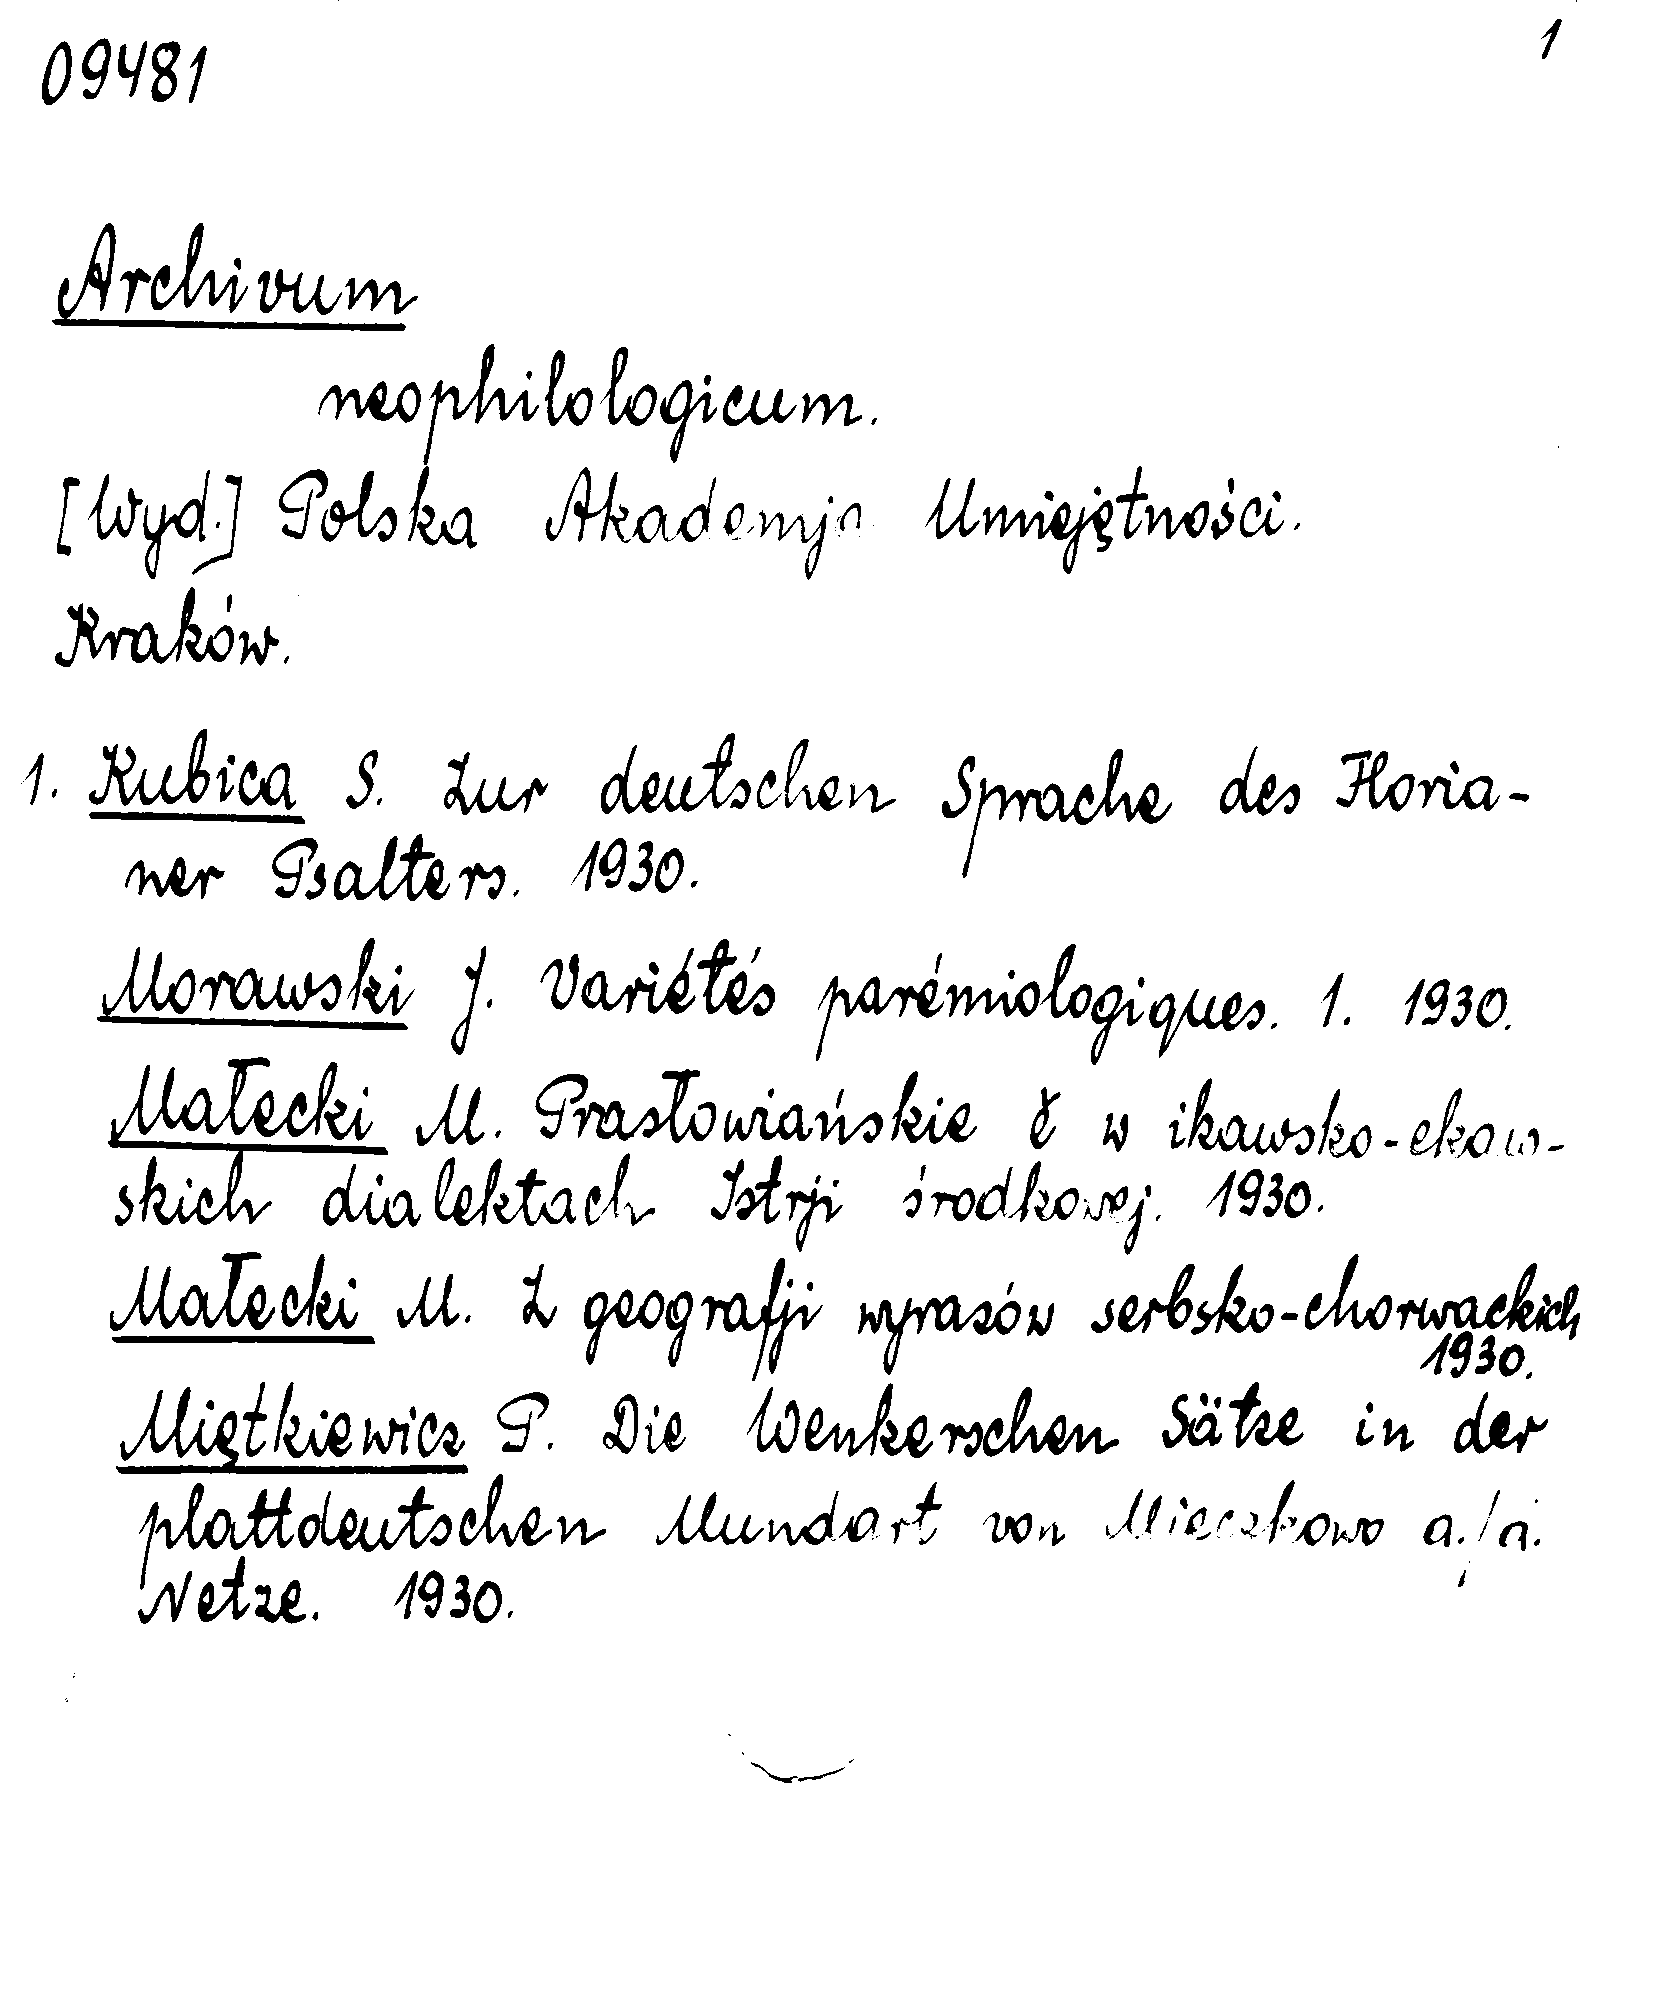 09481
1
Archivum
neophilologicum.
[Wyd.] Polska Akademja Umiejętności.
Kraków.
1. Kubica S. Zur deutschen Sprache des Floria-
ner Psalters. 1930.
Morawski J. Variétés parémiologiques. 1. 1930.
Małecki M. Prasłowiańskie ě w ikawsko-ekaw-
skich dialektach Istrji środkowej. 1930.
Małecki M. Z geografji wyrazów serbsko-chorwackich
1930.
Miętkiewicz P. Die Wenkerschen Sätze in der
plattdeutschen Mundart von Mieczkowo a./d.
Netze. 1930.